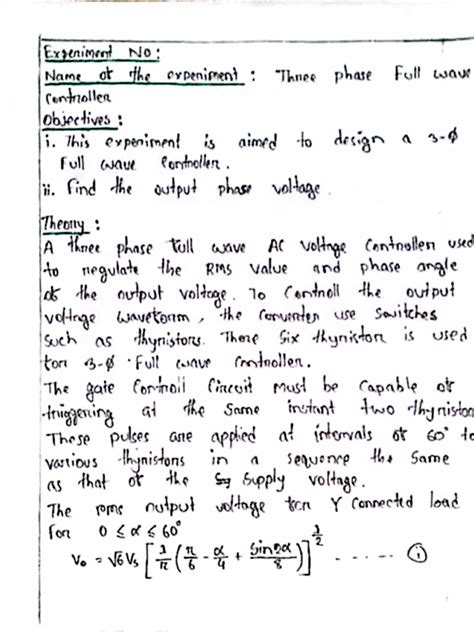 Experiment No:
Name of the experiment : Three phase Full wave
Controller
Objectives :
i. This experiment is aimed to design a 3-Φ
Full wave Controller.
ii. Find the output phase voltage.
Theory :
A three phase full wave AC voltage Controller used
to regulate the RMS value and phase angle
of the output voltage. To Controll the output
voltage waveform, the Converter use Switches
Such as thyristors. There Six thyristor is used
for 3-Φ Full wave Controller.
The gate Controll Circuit must be Capable of
triggering at the Same instant two thyristor
These pulses are applied at intervals of 60° to
various thyristors in a sequence the Same
as that of the Supply voltage.
The rms output voltage for Y Connected load
For 0 ≤ α ≤ 60°
V₀ = √6 Vs [ 1/π ( π/6 - α/4 + sin2α/8 ) ]^1/2 ------ ①